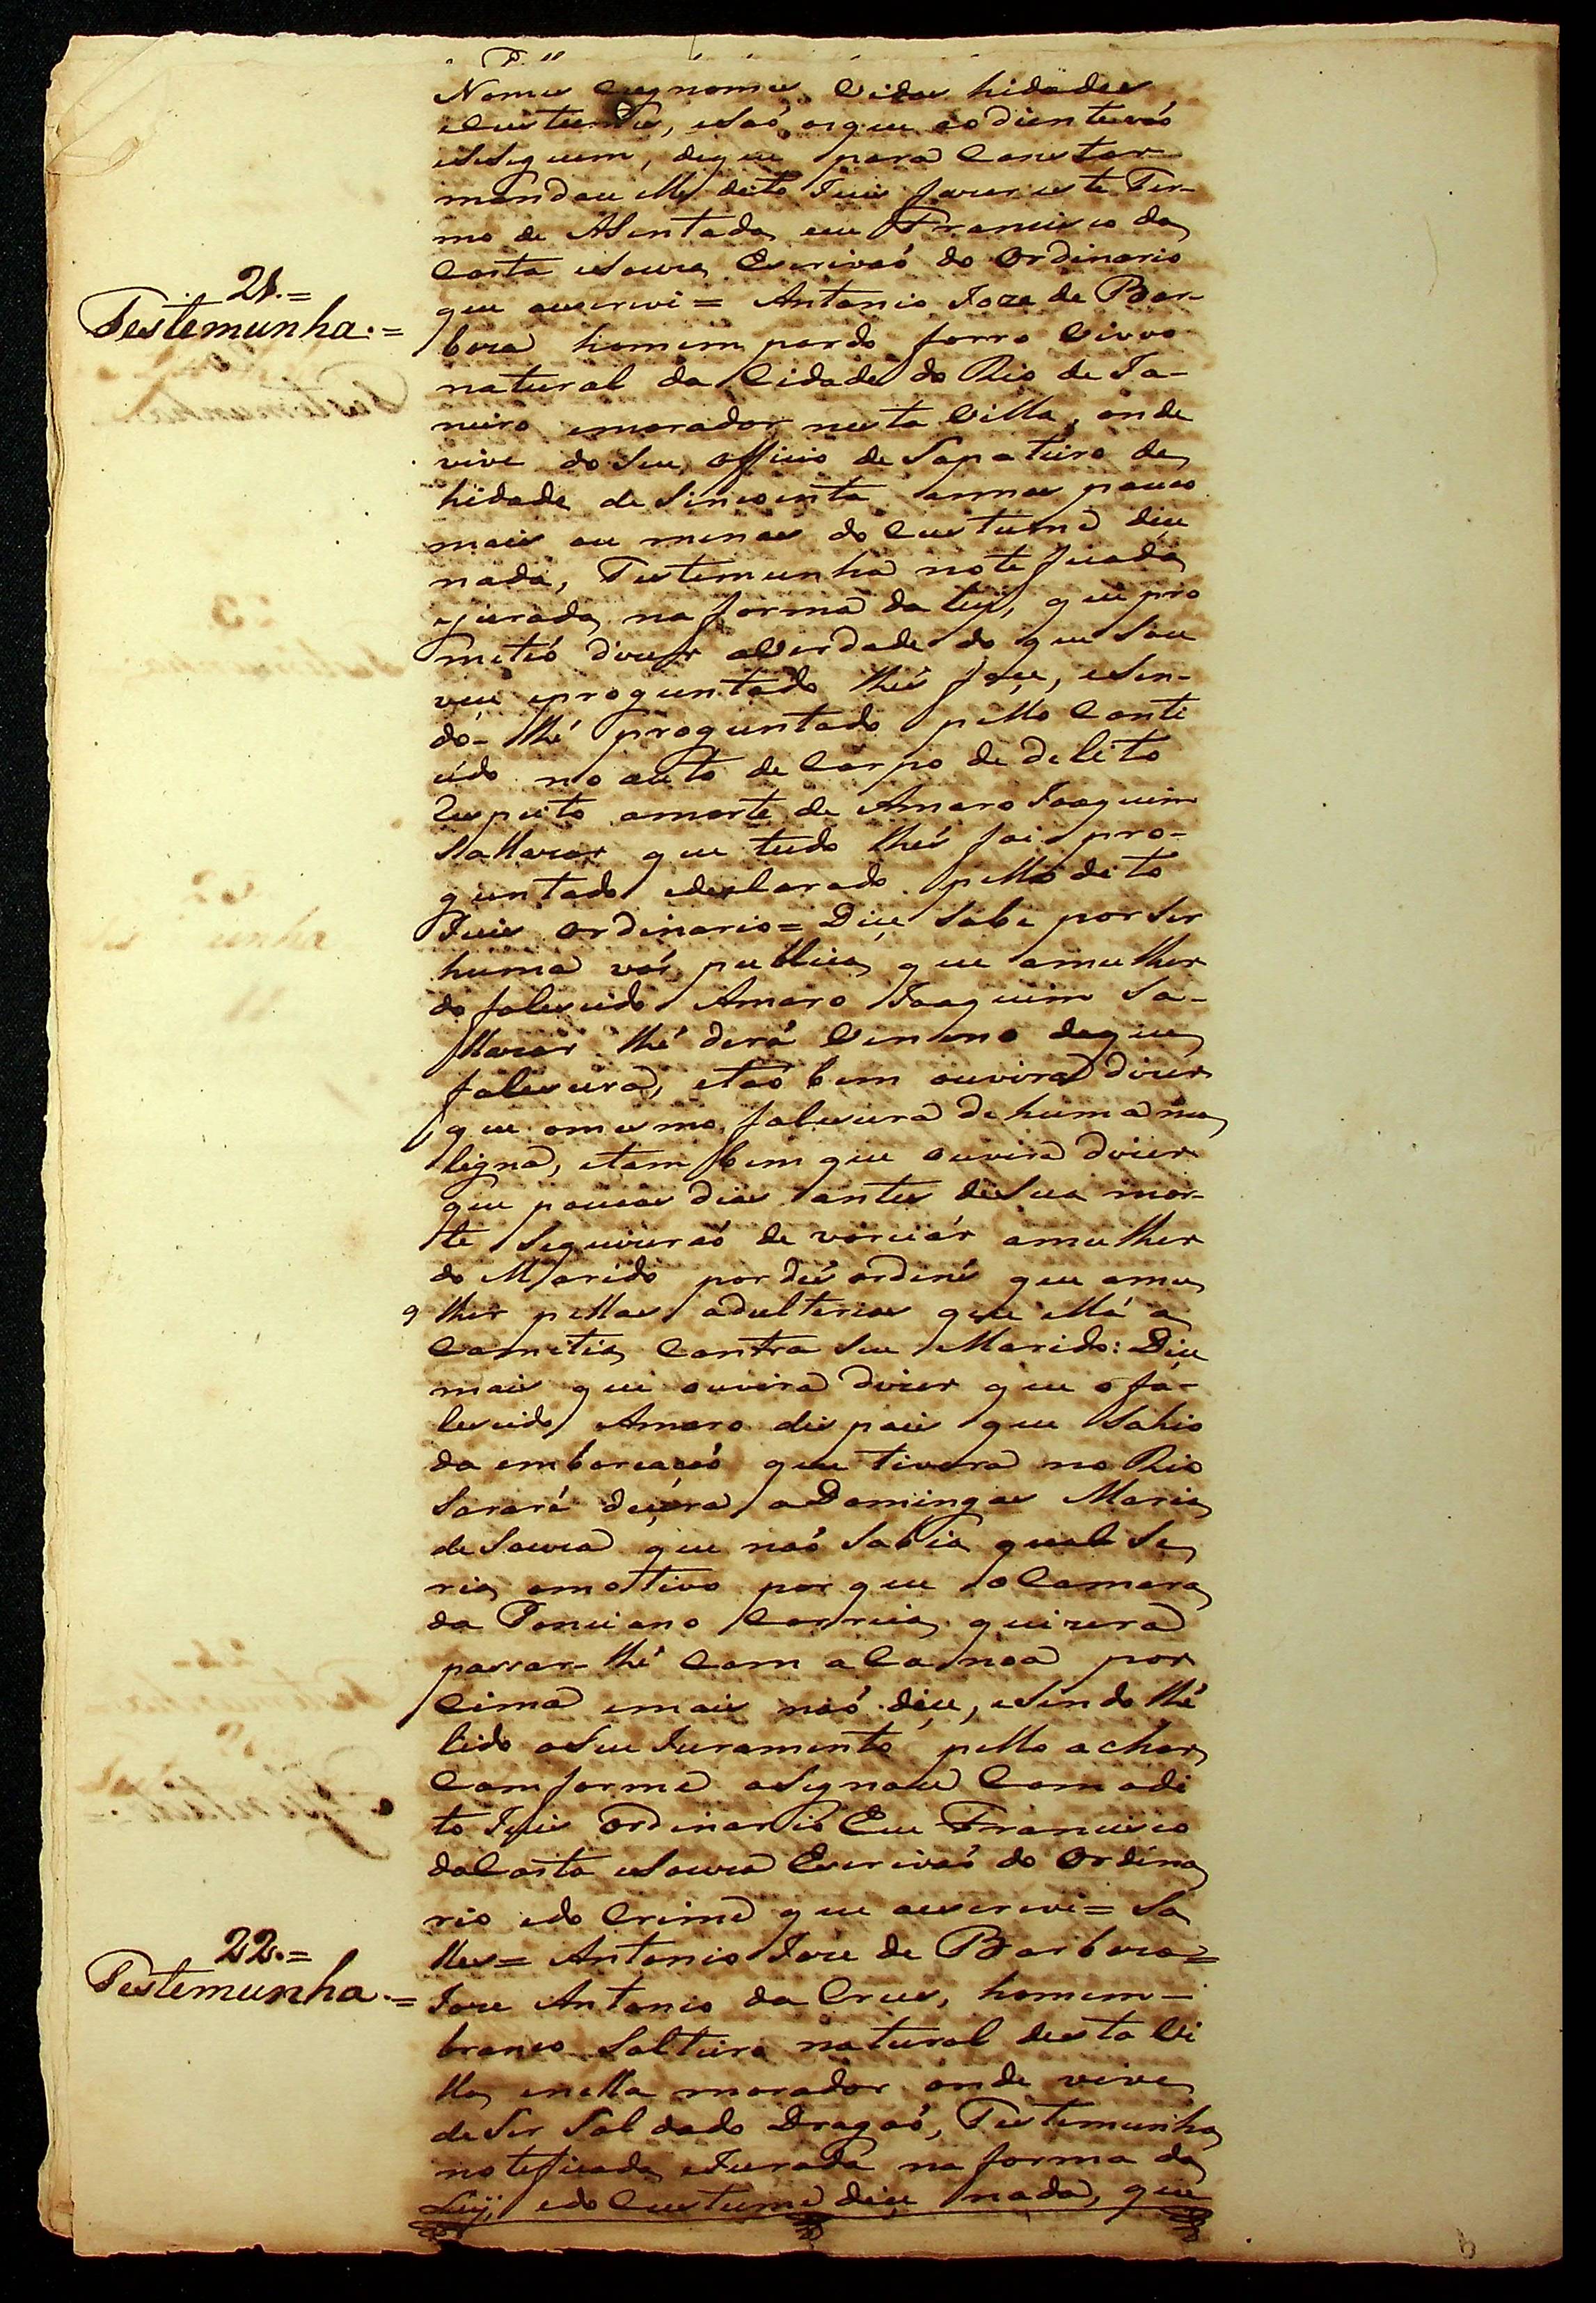 Nomes Cognomes, Vidas hidades
eCustumes, esaó, os que aodiente vaó
eseseguem, de que para Constar
mandou elle dito Juis fazer este Ter-
mo de Asentada, eu Francisco da
Costa eSouza, Escrivaó do Ordinario
21.=
Testemunha.=
que oescrevi = Antonio Joze de Bar-
boza homem pardo forro Viuvo
natural da Cidade do Rio de Ja-
neiro emorador nesta Villa, onde
vive do Seu officio de Sapateiro de
hidade de Sincoenta annos pouco
mais ou menos do Custume diçe
nada, Testemunha noteficada
ejurada na forma da Ley, que pro
meteó dizer aVerdade do que Sou
veçe eproguntado lhé foçe, eSen-
do-lhé proguntado pello Conti
údo no auto de Corpo de delito
Respeito amorte de Amaro Joaquim
Sallazar que tudo lhé foi pro-
guntado edeclarado pello dito
Juis Ordinario = Diçe Sabe por Ser
huma vós publica, que amulher
do falescido Amaro Joaquim Sa-
llazar lhé dera Veneno de que
falescera, etaó bem ouvira dizer
que omesmo falescera de huma ma
ligna, etam bem que ouvira dizer
que poucos dias antes deSua mor-
te Sequizeraó de vorciár amulher
do Marido por dés ordens que amu
lher pellos adulterios que ella a
Cometia Contra Seu Marido: Diçe
mais que ouvira dizer que o fa-
lescido Amaro dis pois que Sahio
da embarcaçaó que tivera no Rio
Sararé diçera a Domingos Maria
deSouza que naó Sabia qual Se
ria omotivo por que o Camara
da Ponciano Correia quizera
passar-lhé Com a Canoa por
Cima emais naó diçe, eSendo lhé
lido oSeu Juramento pello achar
Comforme aSignou Com odi
to Juis Ordinario Eu Francisco
daCosta eSouza Escrivaó do Ordina
rio edo Crime que oescrevi = Sa
lles = Antonio Joze de Barboza =
22.=
Testemunha.=
Joze Antonio da Crus, homem
branco Solteiro natural desta Vi
lla, enella morador onde vive
deSer Soldado Dragaó, Testemunha
noteficada eJurada na forma da
Ley, edo Custume diçe nada, que